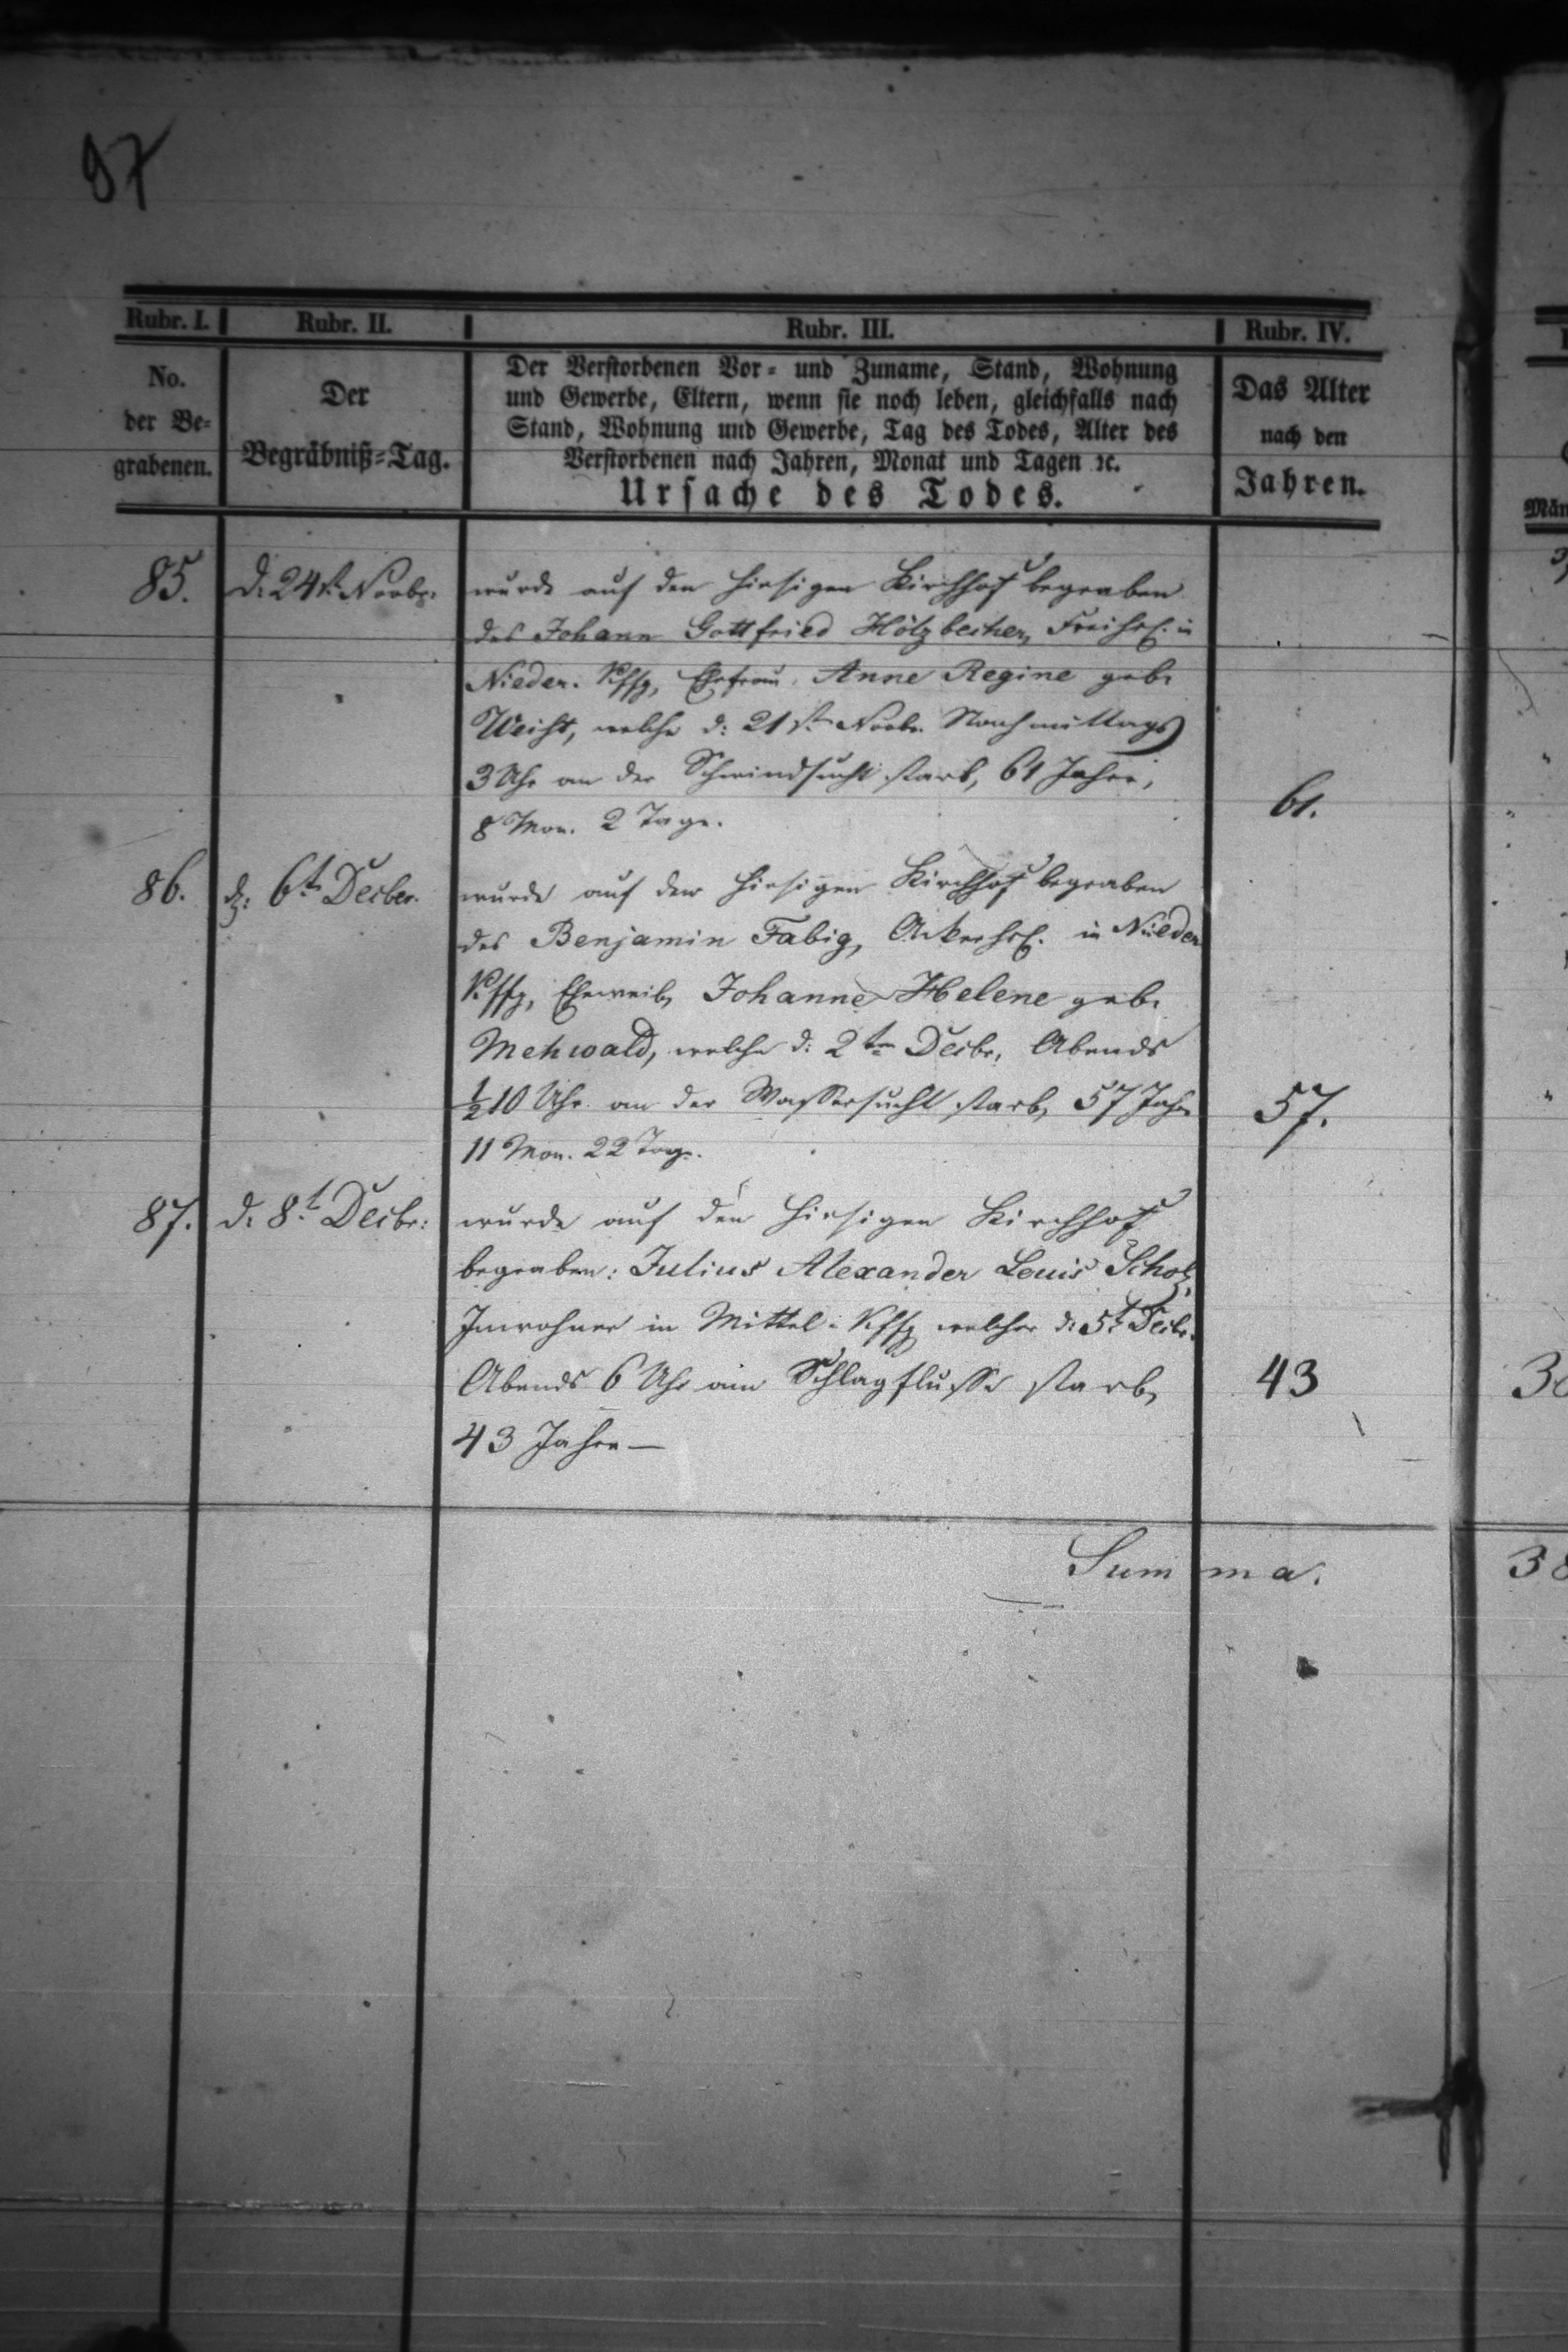 97
Rubr. I. Rubr. II. Rubr. III. Rubr. IV.
No. der Be-grabenen.
Der Begräbniß-Tag.
Der Verstorbenen Vor- und Zuname, Stand, Wohnung
und Gewerbe, Eltern, wenn sie noch leben, gleichfalls nach
Stand, Wohnung und Gewerbe, Tag des Todes, Alter des
Verstorbenen nach Jahren, Monat und Tagen ꝛc.
Ursache des Todes.
Das Alter
nach den
Jahren.
85. d. 24t. Novbr. wurde auf den hiesigen Kirchhof begraben
des Johann Gottfried Hölzbecher, in
Nieder. Kffg, Ehefrau, Anne Regine geb.
Weist, welche d: 21st. Novbr. Nachmittags
3 Uhr an der Schwindsucht starb, 61 Jahre,
8 Mon. 2 Tage. 61.
86. d: 6t. Decbr. wurde auf den hiesigen Kirchhof begraben
des Benjamin Fabig, in Nieder
Kffg, Eheweib, Johanne Helene geb.
Mehwald, welche d: 2ten Decbr. Abends
½10 Uhr an der Wassersucht starb, 57 Jahr 57.
11 Mon. 22 Tage.
87. d. 8t. Decbr: wurde auf den hiesigen Kirchhof
begraben: Julius Alexander Louis Scholz,
Inwohner in Mittel-Kffg welcher d: 5t. Decbr.
Abends 6 Uhr am Schlagflusse starb, 43
43 Jahre —
Summa.